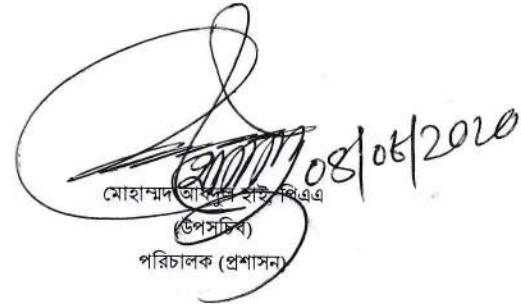 08/06/2020
মোহাম্মদ আবদুল হাই, পিএএ
(উপসচিব)
পরিচালক (প্রশাসন)